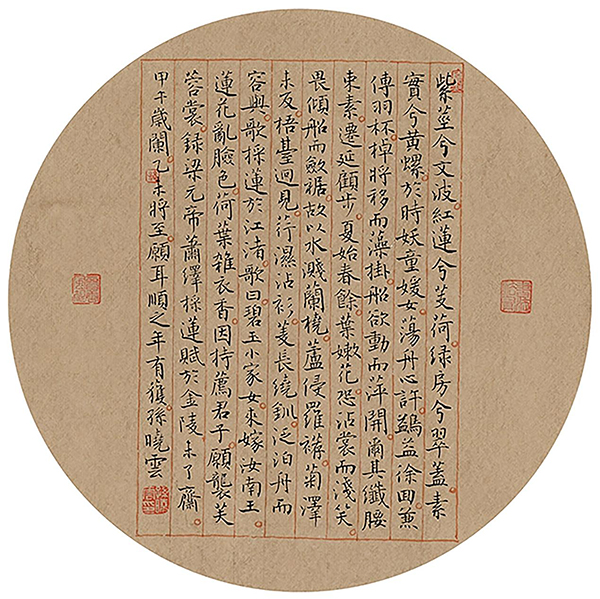 紫莖兮文波紅蓮兮芰荷緑房兮翠盖素
實兮黄螺於時妖童媛女蕩舟心許鷁徐回兼
傳羽杯棹將移而藻掛船欲動而萍開爾其纖腰
束素遷延顧步夏始春餘葉嫩花恐沾裳而淺笑
畏傾船而斂裾故以水濺蘭橈蘆侵羅襪菊澤
未反梧臺迥見荇濕沾衫菱長繞釧泛泊舟而
容與歌採蓮於江渚歌曰碧玉小家女來嫁汝南王
蓮花亂臉色荷葉雜衣香因持薦君子願襲芙
蓉裳録梁元帝蕭繹採蓮賦於金陵未了齋
甲午歲闌乙未將至願耳順之年有獲孫曉雲